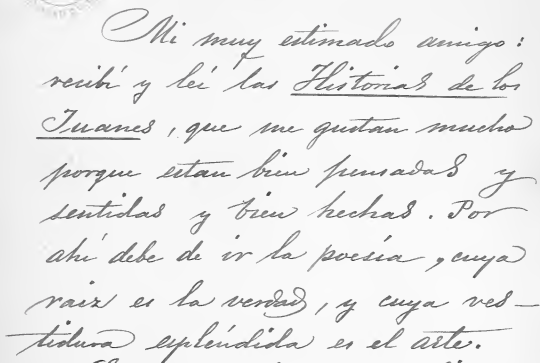 Mi muy estimado amigo:
recibí y leí las Historias de los
Juanes, que me gustan mucho
porque estan bien pensadas y
sentidas y bien hechas. Por
ahí debe de ir la poesía, cuya
raiz es la verdad, y cuya ves-
tidura espléndida es el arte.